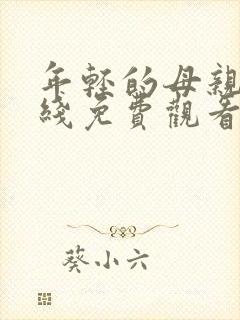 年轻的母親
綫免費觀看
葵小六